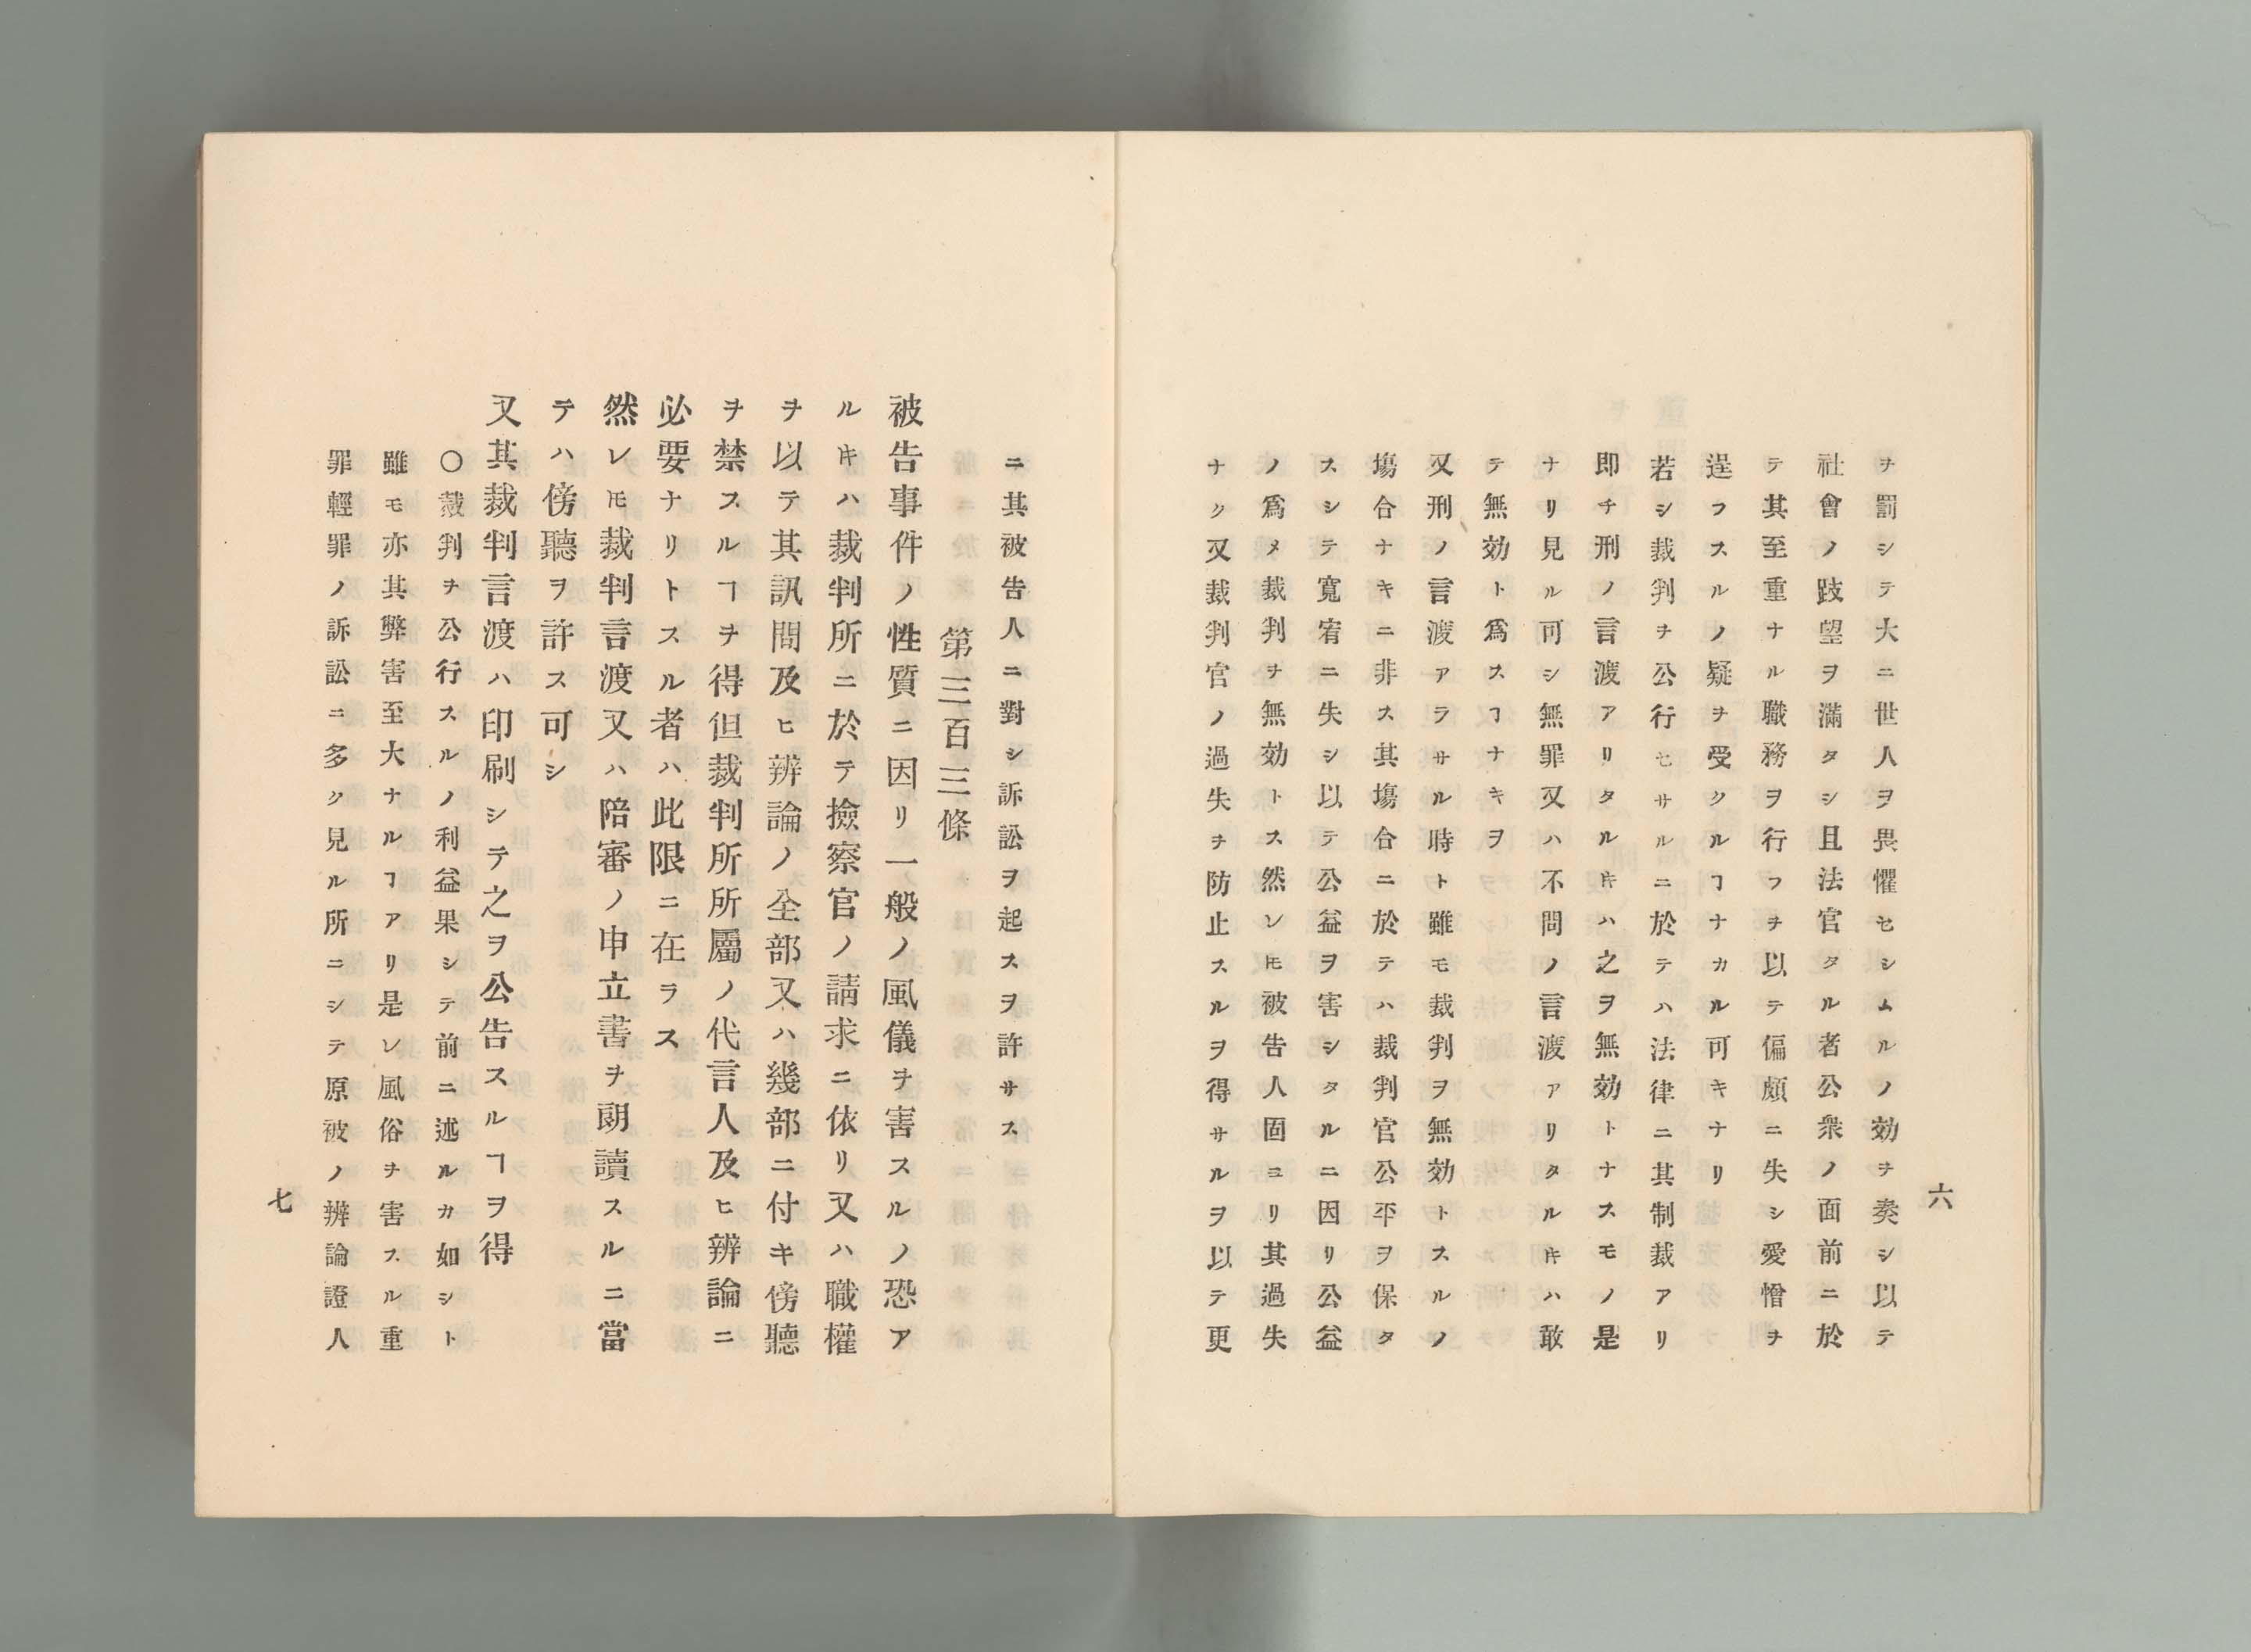 六
ヲ罰シテ大ニ世人ヲ畏懼セシムルノ効ヲ奏シ以テ
社會ノ跂望ヲ滿タシ且法官タル者公衆ノ面前ニ於
テ其至重ナル職務ヲ行フヲ以テ偏頗ニ失シ愛憎ヲ
逞フスルノ疑ヲ受クルヿナカル可キナリ
若シ裁判ヲ公行セサルニ於テハ法律ニ其制裁アリ
即チ刑ノ言渡アリタルキハ之ヲ無効トナスモノ是
ナリ見ル可シ無罪又ハ不問ノ言渡アリタルキハ敢
テ無効ト爲スヿナキヲ
又刑ノ言渡アラサル時ト雖モ裁判ヲ無効トスルノ
塲合ナキニ非ス其塲合ニ於テハ裁判官公平ヲ保タ
スシテ寬宥ニ失シ以テ公益ヲ害シタルニ因リ公益
ノ爲メ裁判ヲ無効トス然レㇳモ被告人固ヨリ其過失
ナク又裁判官ノ過失ヲ防止スルヲ得サルヲ以テ更
ニ其被告人ニ對シ訴訟ヲ起スヲ許サス
第三百三條
被告事件ノ性質ニ因リ一般ノ風儀ヲ害スルノ恐ア
ルキハ裁判所ニ於テ撿察官ノ請求ニ依リ又ハ職權
ヲ以テ其訊問及ヒ辨論ノ全部又ハ幾部ニ付キ傍聽
ヲ禁スルヿヲ得但裁判所所屬ノ代言人及ヒ辨論ニ
必要ナリトスル者ハ此限ニ在ラス
然レㇳモ裁判言渡又ハ陪審ノ申立書ヲ朗讀スルニ當
テハ傍聽ヲ許ス可シ
又其裁判言渡ハ印刷シテ之ヲ公告スルヿヲ得
〇裁判ヲ公行スルノ利益果シテ前ニ述ルカ如シト
雖モ亦其弊害至大ナルヿアリ是レ風俗ヲ害スル重
罪輕罪ノ訴訟ニ多ク見ル所ニシテ原被ノ辨論證人
七